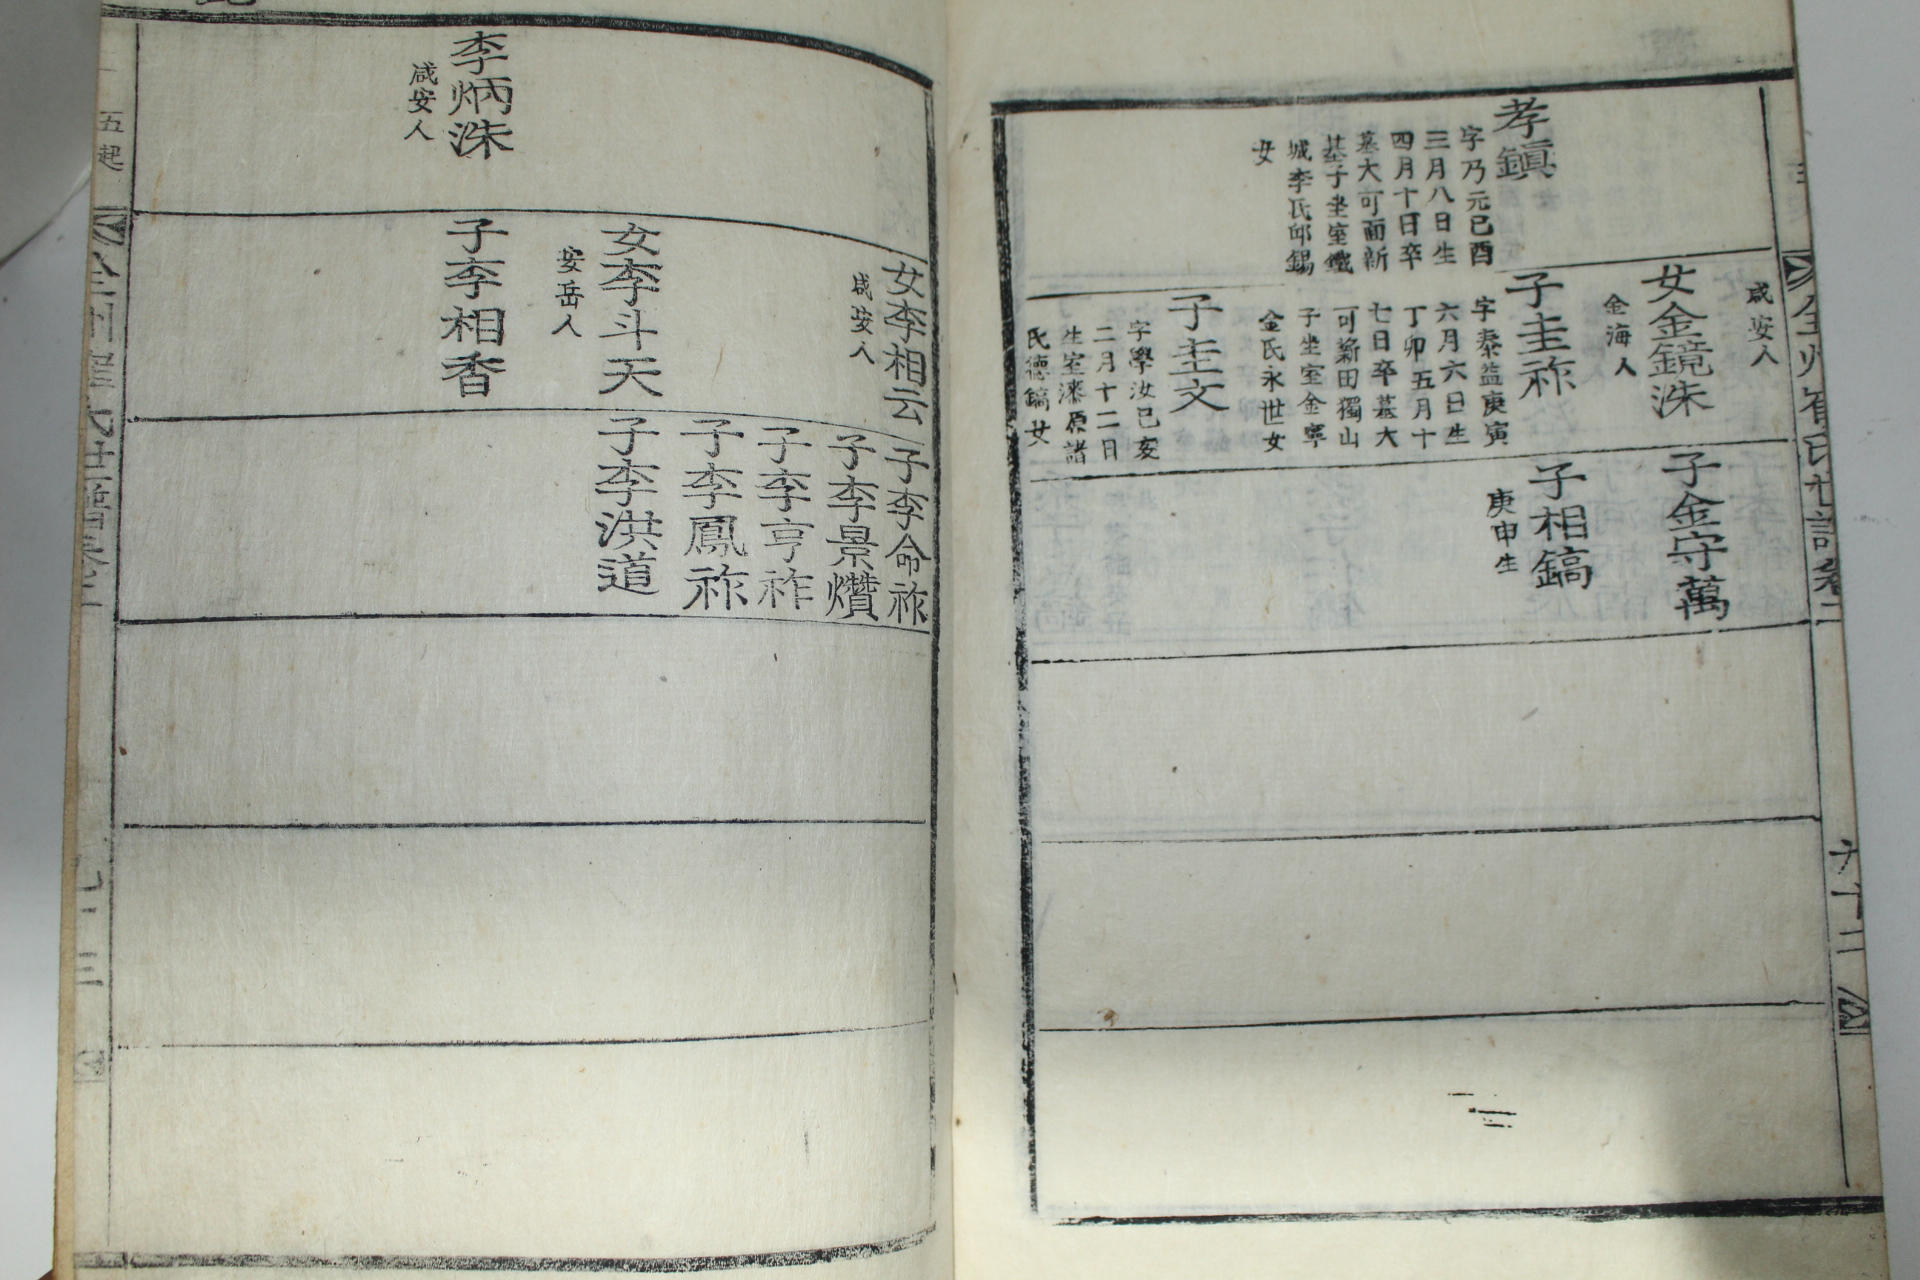 全州崔氏世譜卷二
六十二
孝鎭
字乃元己酉
三月八日生
四月十日卒
墓大可面新
基子坐室鐵
城李氏邱錫
女
咸安人
女金鏡洙
金海人
子圭祚
字泰益庚寅
六月六日生
丁卯五月十
七日卒墓大
可新田獨山
子坐室金寧
金氏永世女
子圭文
字學汝己亥
二月十二日
生室漆原諸
氏德鎬女
子金守萬
子相鎬
庚申生
李炳洙
咸安人
女李相云
咸安人
女李斗天
安岳人
子李相香
子李命祚
子李景懿
子李亨祚
子李鳳祚
子李洪道
五起
全州崔氏世譜卷二